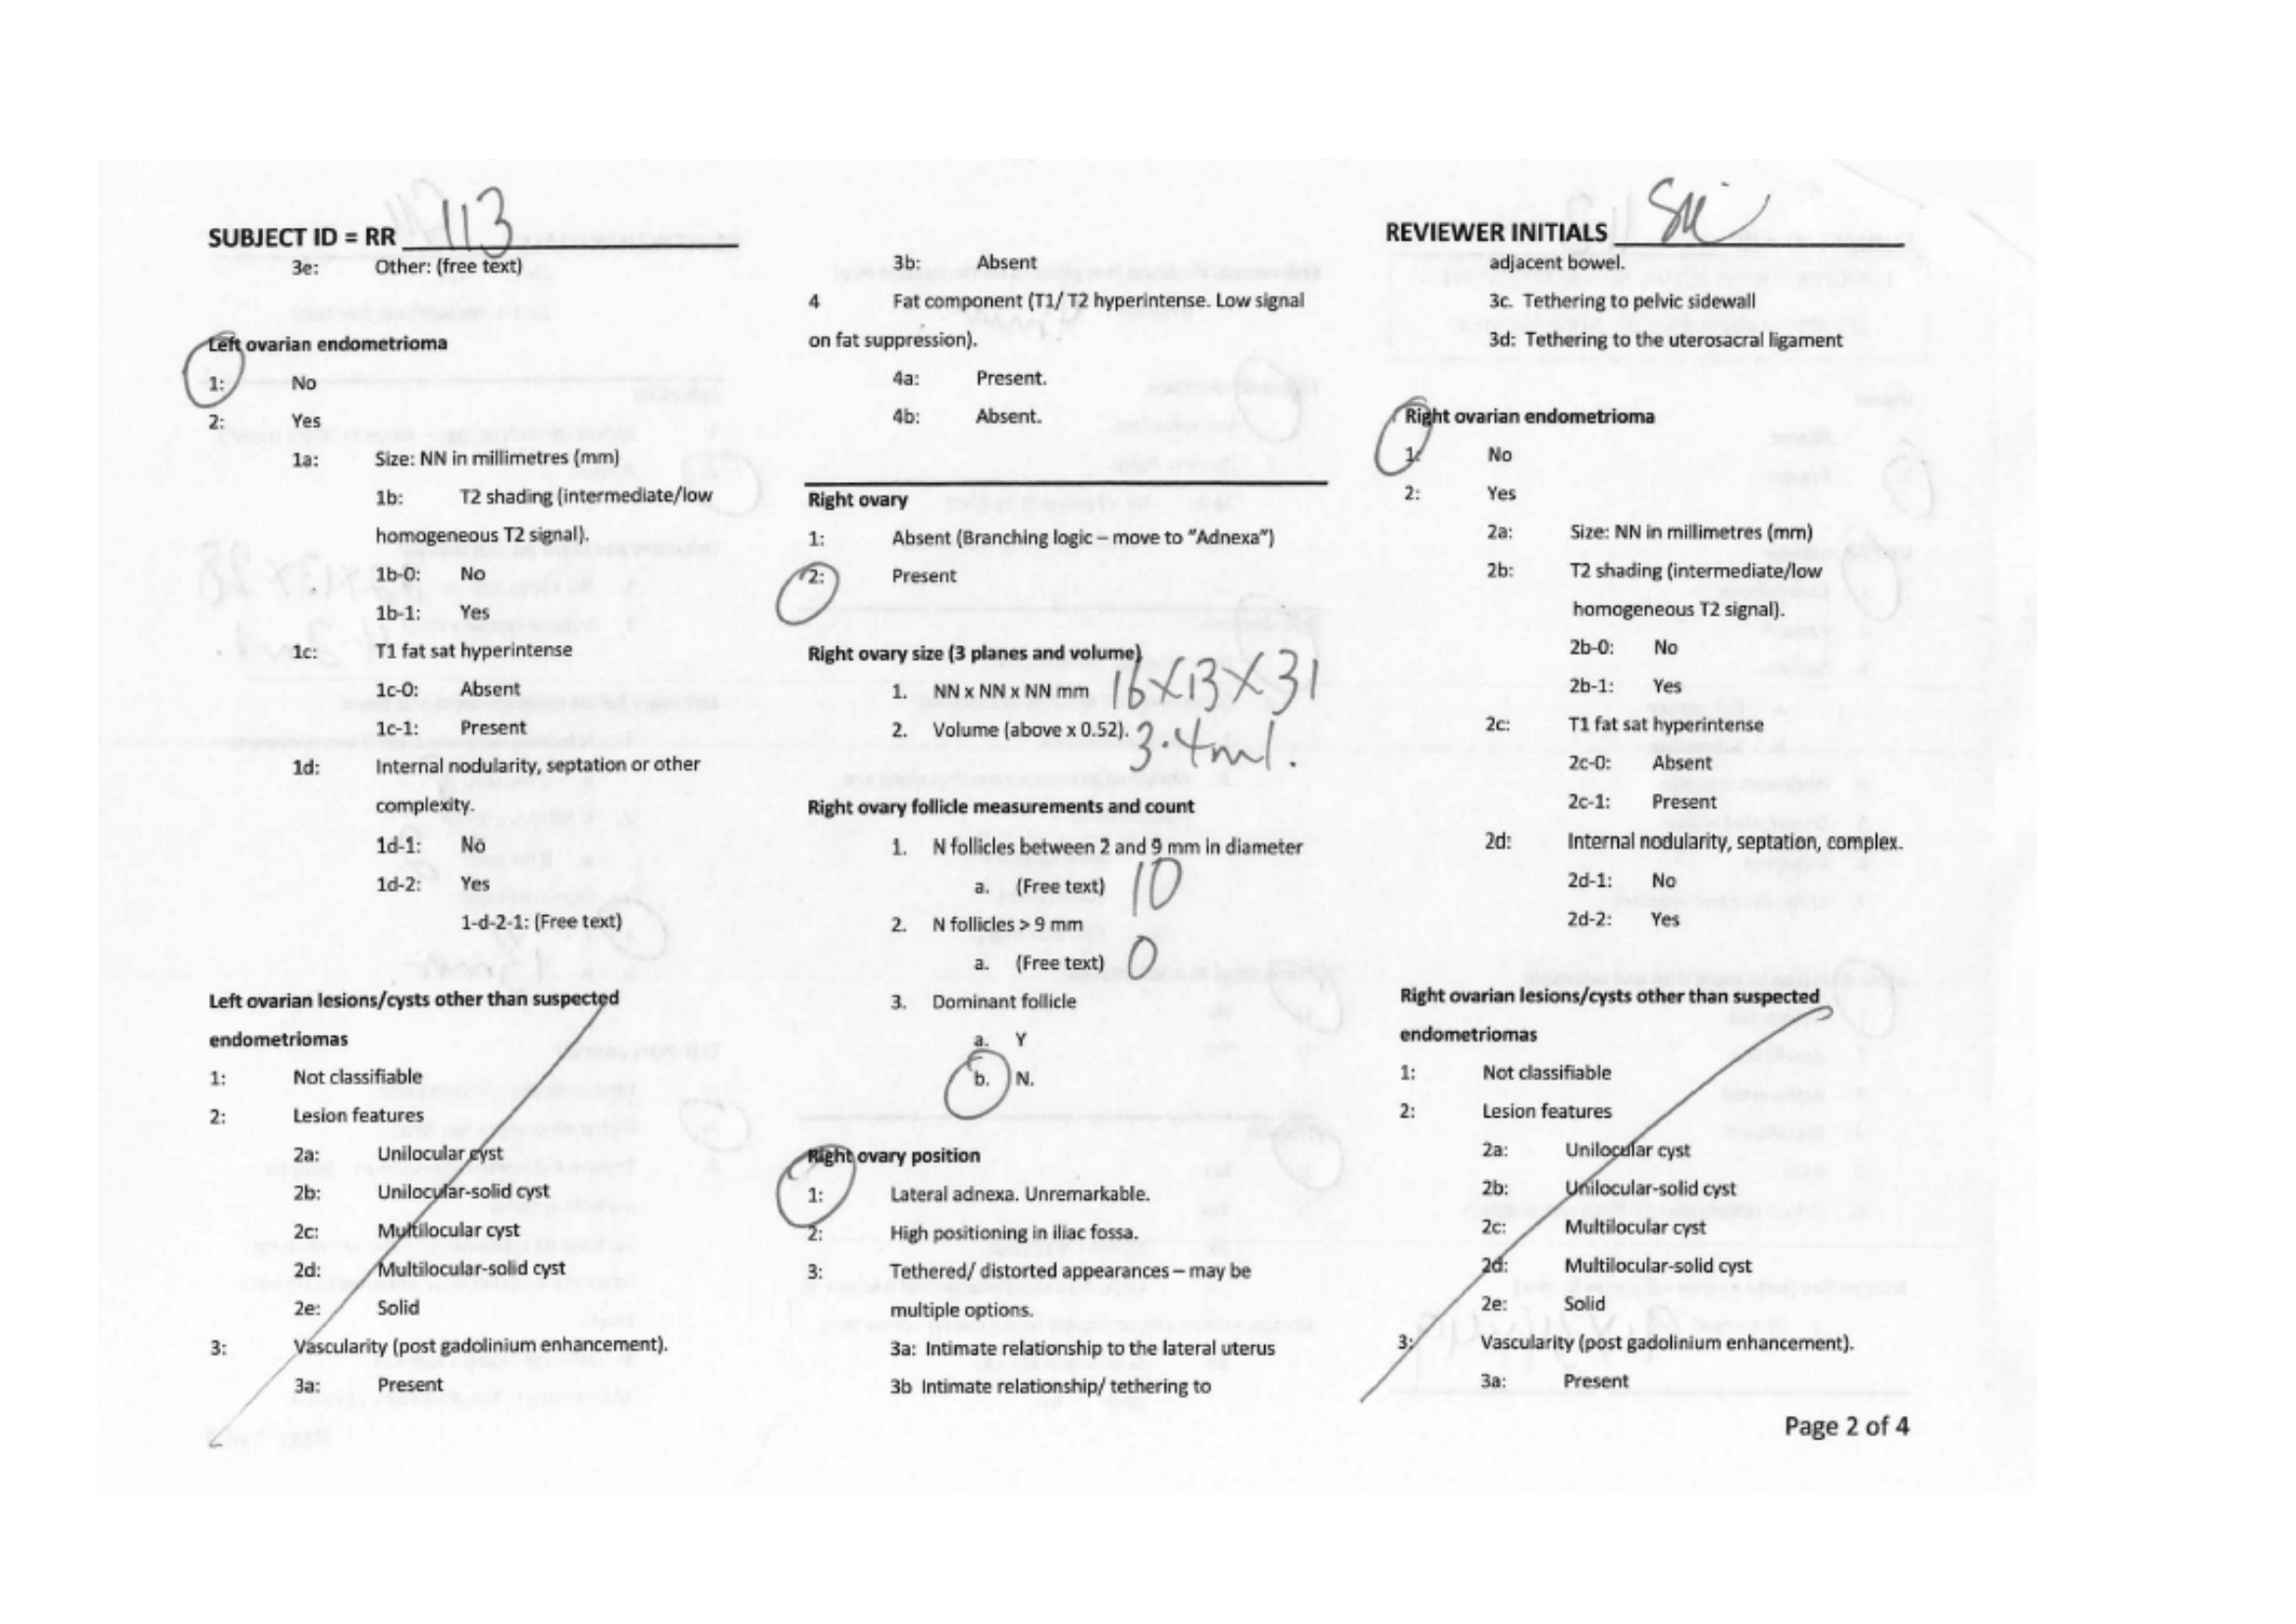 SUBJECT ID = RR 113
3e: Other: (free text)
Left ovarian endometrioma
1: No
2: Yes
1a: Size: NN in millimetres (mm)
1b: T2 shading (intermediate/low
homogeneous T2 signal).
1b-0: No
1b-1: Yes
1c: T1 fat sat hyperintense
1c-0: Absent
1c-1: Present
1d: Internal nodularity, septation or other
complexity.
1d-1: No
1d-2: Yes
1-d-2-1: (Free text)
Left ovarian lesions/cysts other than suspected
endometriomas
1: Not classifiable
2: Lesion features
2a: Unilocular cyst
2b: Unilocular-solid cyst
2c: Multilocular cyst
2d: Multilocular-solid cyst
2e: Solid
3: Vascularity (post gadolinium enhancement).
3a: Present
3b: Absent
4 Fat component (T1/ T2 hyperintense. Low signal
on fat suppression).
4a: Present.
4b: Absent.
Right ovary
1: Absent (Branching logic – move to "Adnexa")
2: Present
Right ovary size (3 planes and volume)
1. NN x NN x NN mm 16x13x31
2. Volume (above x 0.52). 3.4ml.
Right ovary follicle measurements and count
1. N follicles between 2 and 9 mm in diameter
a. (Free text) 10
2. N follicles > 9 mm
a. (Free text) 0
3. Dominant follicle
a. Y
b. N.
Right ovary position
1: Lateral adnexa. Unremarkable.
2: High positioning in iliac fossa.
3: Tethered/ distorted appearances – may be
multiple options.
3a: Intimate relationship to the lateral uterus
3b Intimate relationship/ tethering to
REVIEWER INITIALS
adjacent bowel.
3c. Tethering to pelvic sidewall
3d: Tethering to the uterosacral ligament
Right ovarian endometrioma
1: No
2: Yes
2a: Size: NN in millimetres (mm)
2b: T2 shading (intermediate/low
homogeneous T2 signal).
2b-0: No
2b-1: Yes
2c: T1 fat sat hyperintense
2c-0: Absent
2c-1: Present
2d: Internal nodularity, septation, complex.
2d-1: No
2d-2: Yes
Right ovarian lesions/cysts other than suspected
endometriomas
1: Not classifiable
2: Lesion features
2a: Unilocular cyst
2b: Unilocular-solid cyst
2c: Multilocular cyst
2d: Multilocular-solid cyst
2e: Solid
3: Vascularity (post gadolinium enhancement).
3a: Present
Page 2 of 4